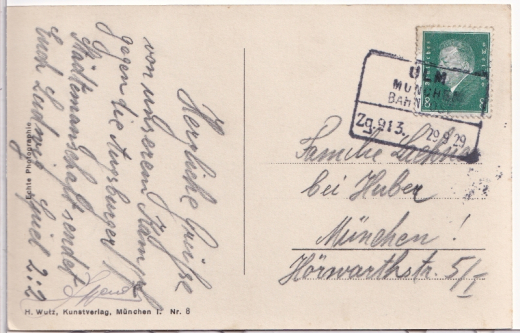 Herzliche Grüsse
von unserem Kampf
gegen die Augsburger
Stadtemannschaft sendet
Euch Ludwig Spiel 2:2
Echte Photographie
H. Wutz, Kunstverlag, München I. Nr. 8
ULM
MÜNCHEN
BAHN
Zg.913. 29.9.29
8 8
Familie
bei Huber
München!
Hörwarthstr. 5/I